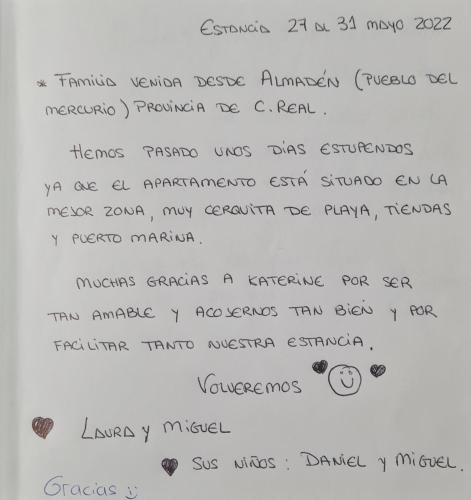 Estancia 27 al 31 mayo 2022
* Familia venida desde Almadén (pueblo del
mercurio) Provincia de C. Real.
Hemos pasado unos días estupendos
ya que el apartamento está situado en la
mejor zona, muy cerquita de playa, tiendas
y puerto marina.
Muchas gracias a Katerine por ser
tan amable y acojernos tan bien y por
facilitar tanto nuestra estancia.
Volveremos
Laura y Miguel
Sus niños: Daniel y Miguel.
Gracias :)